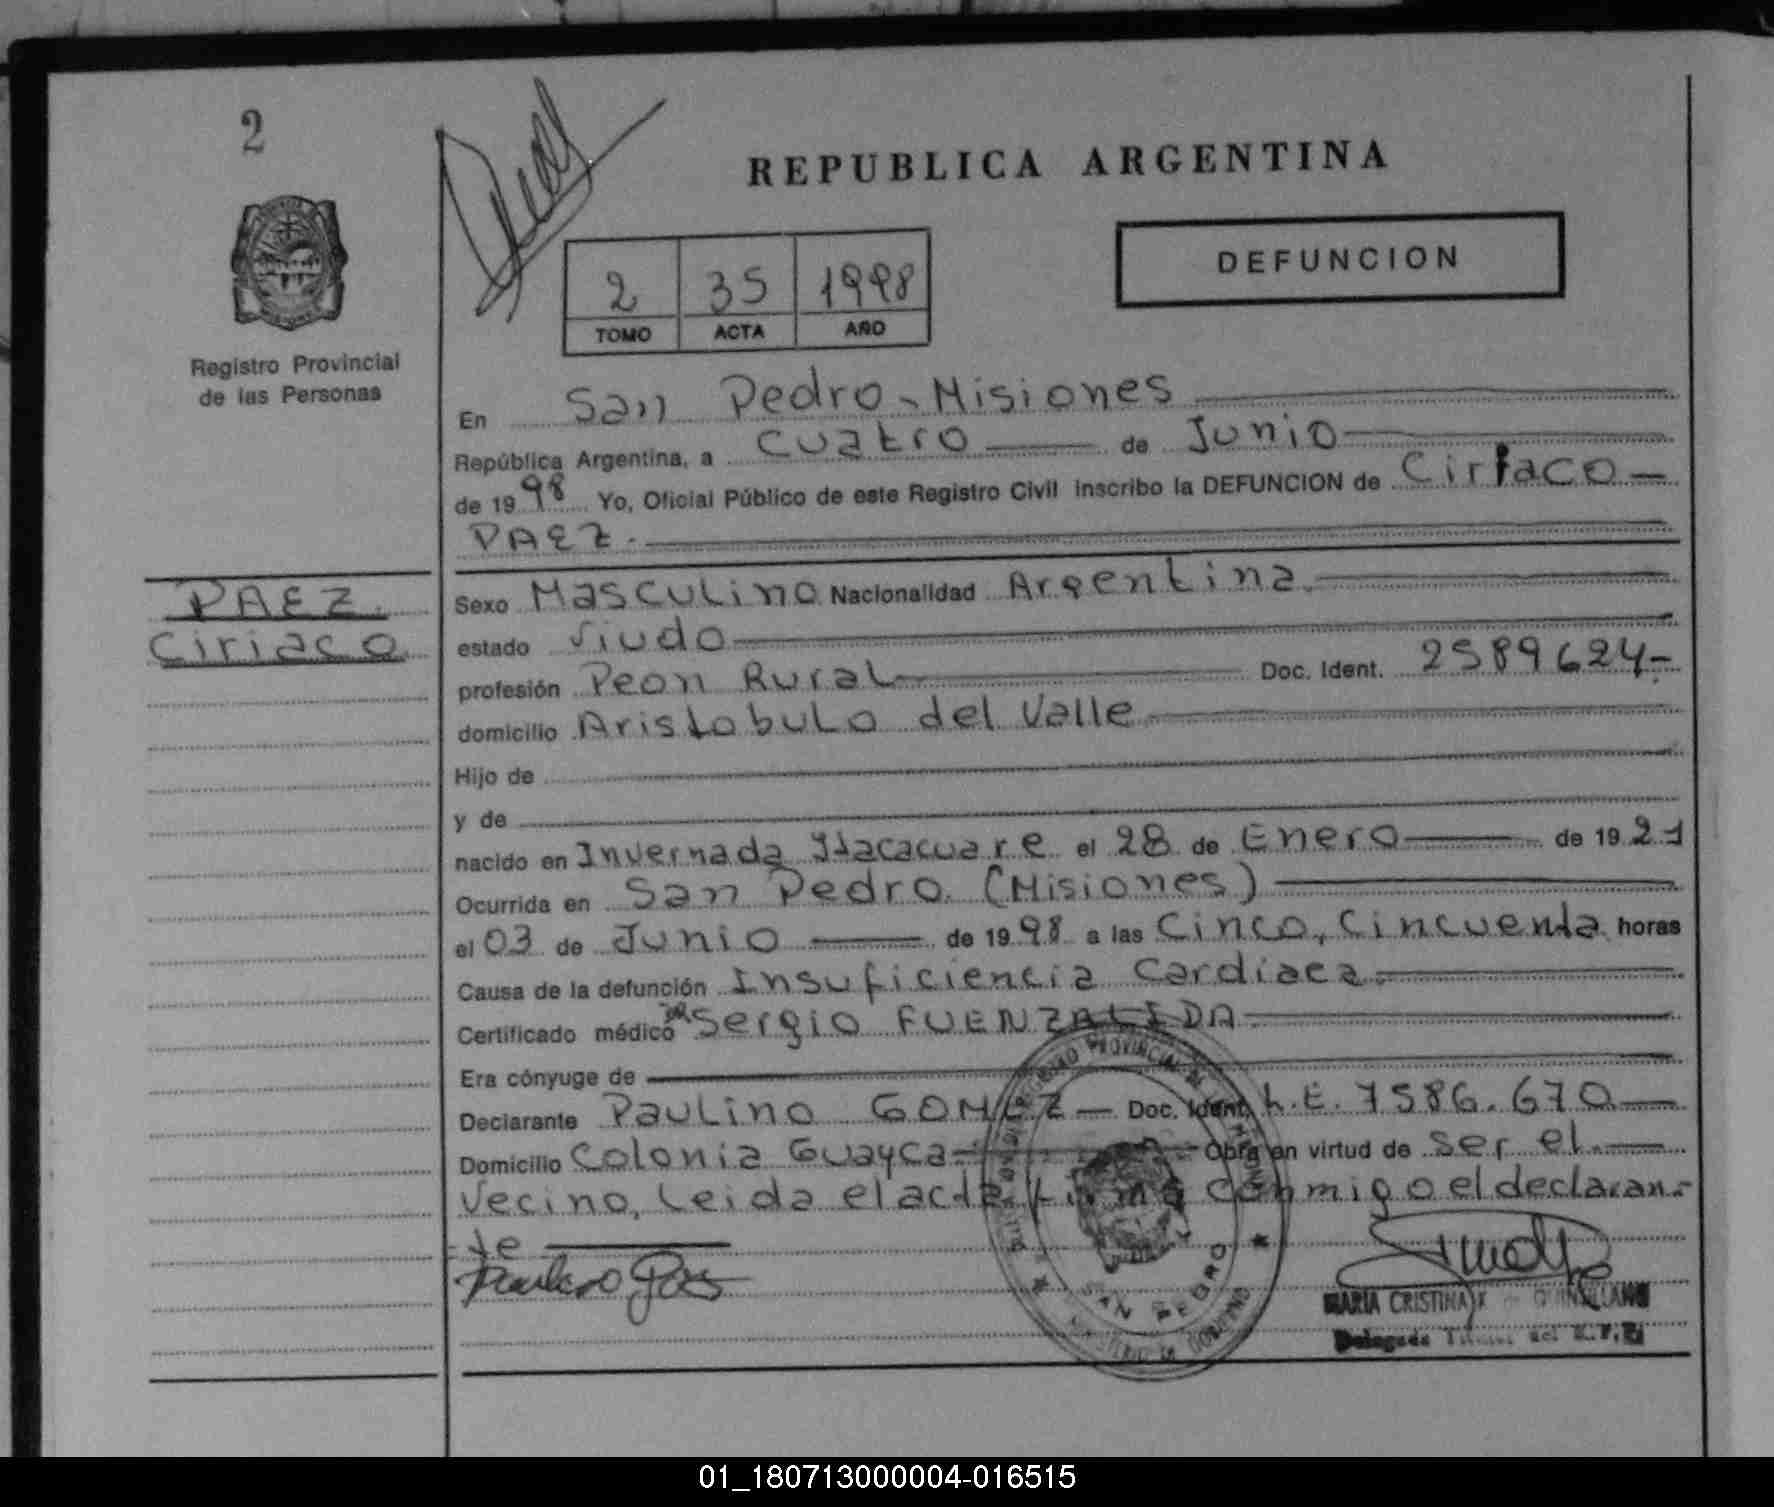 2
REPUBLICA ARGENTINA
DEFUNCION
2 35 1998
TOMO ACTA AÑO
Registro Provincial
de las Personas
En San Pedro - Misiones
República Argentina, a cuatro de Junio
de 1998 Yo, Oficial Público de este Registro Civil inscribo la DEFUNCION de Ciriaco
PAEZ.
PAEZ.
Ciriaco
Sexo Masculino Nacionalidad Argentina.
estado viudo
profesión Peon Rural Doc. Ident. 2589624-
domicilio Aristobulo del Valle
Hijo de
y de
nacido en Invernada Itacacuare el 28 de Enero de 1921
Ocurrida en San Pedro. (Misiones)
el 03 de Junio de 1998 a las Cinco, Cincuenta horas
Causa de la defunción Insuficiencia Cardiaca.
Certificado médico DR Sergio FUENZALIDA
Era cónyuge de
Declarante Paulino GOMEZ Doc. Ident. L.E. 7586.670
Domicilio Colonia Guayca Obra en virtud de ser el
Vecino, Leida el acta firma conmigo el declaran-
te
REGISTRO PROVINCIAL
SAN PEDRO
MARIA CRISTINA
Delegada Titular del R.P.P.
01_180713000004-016515